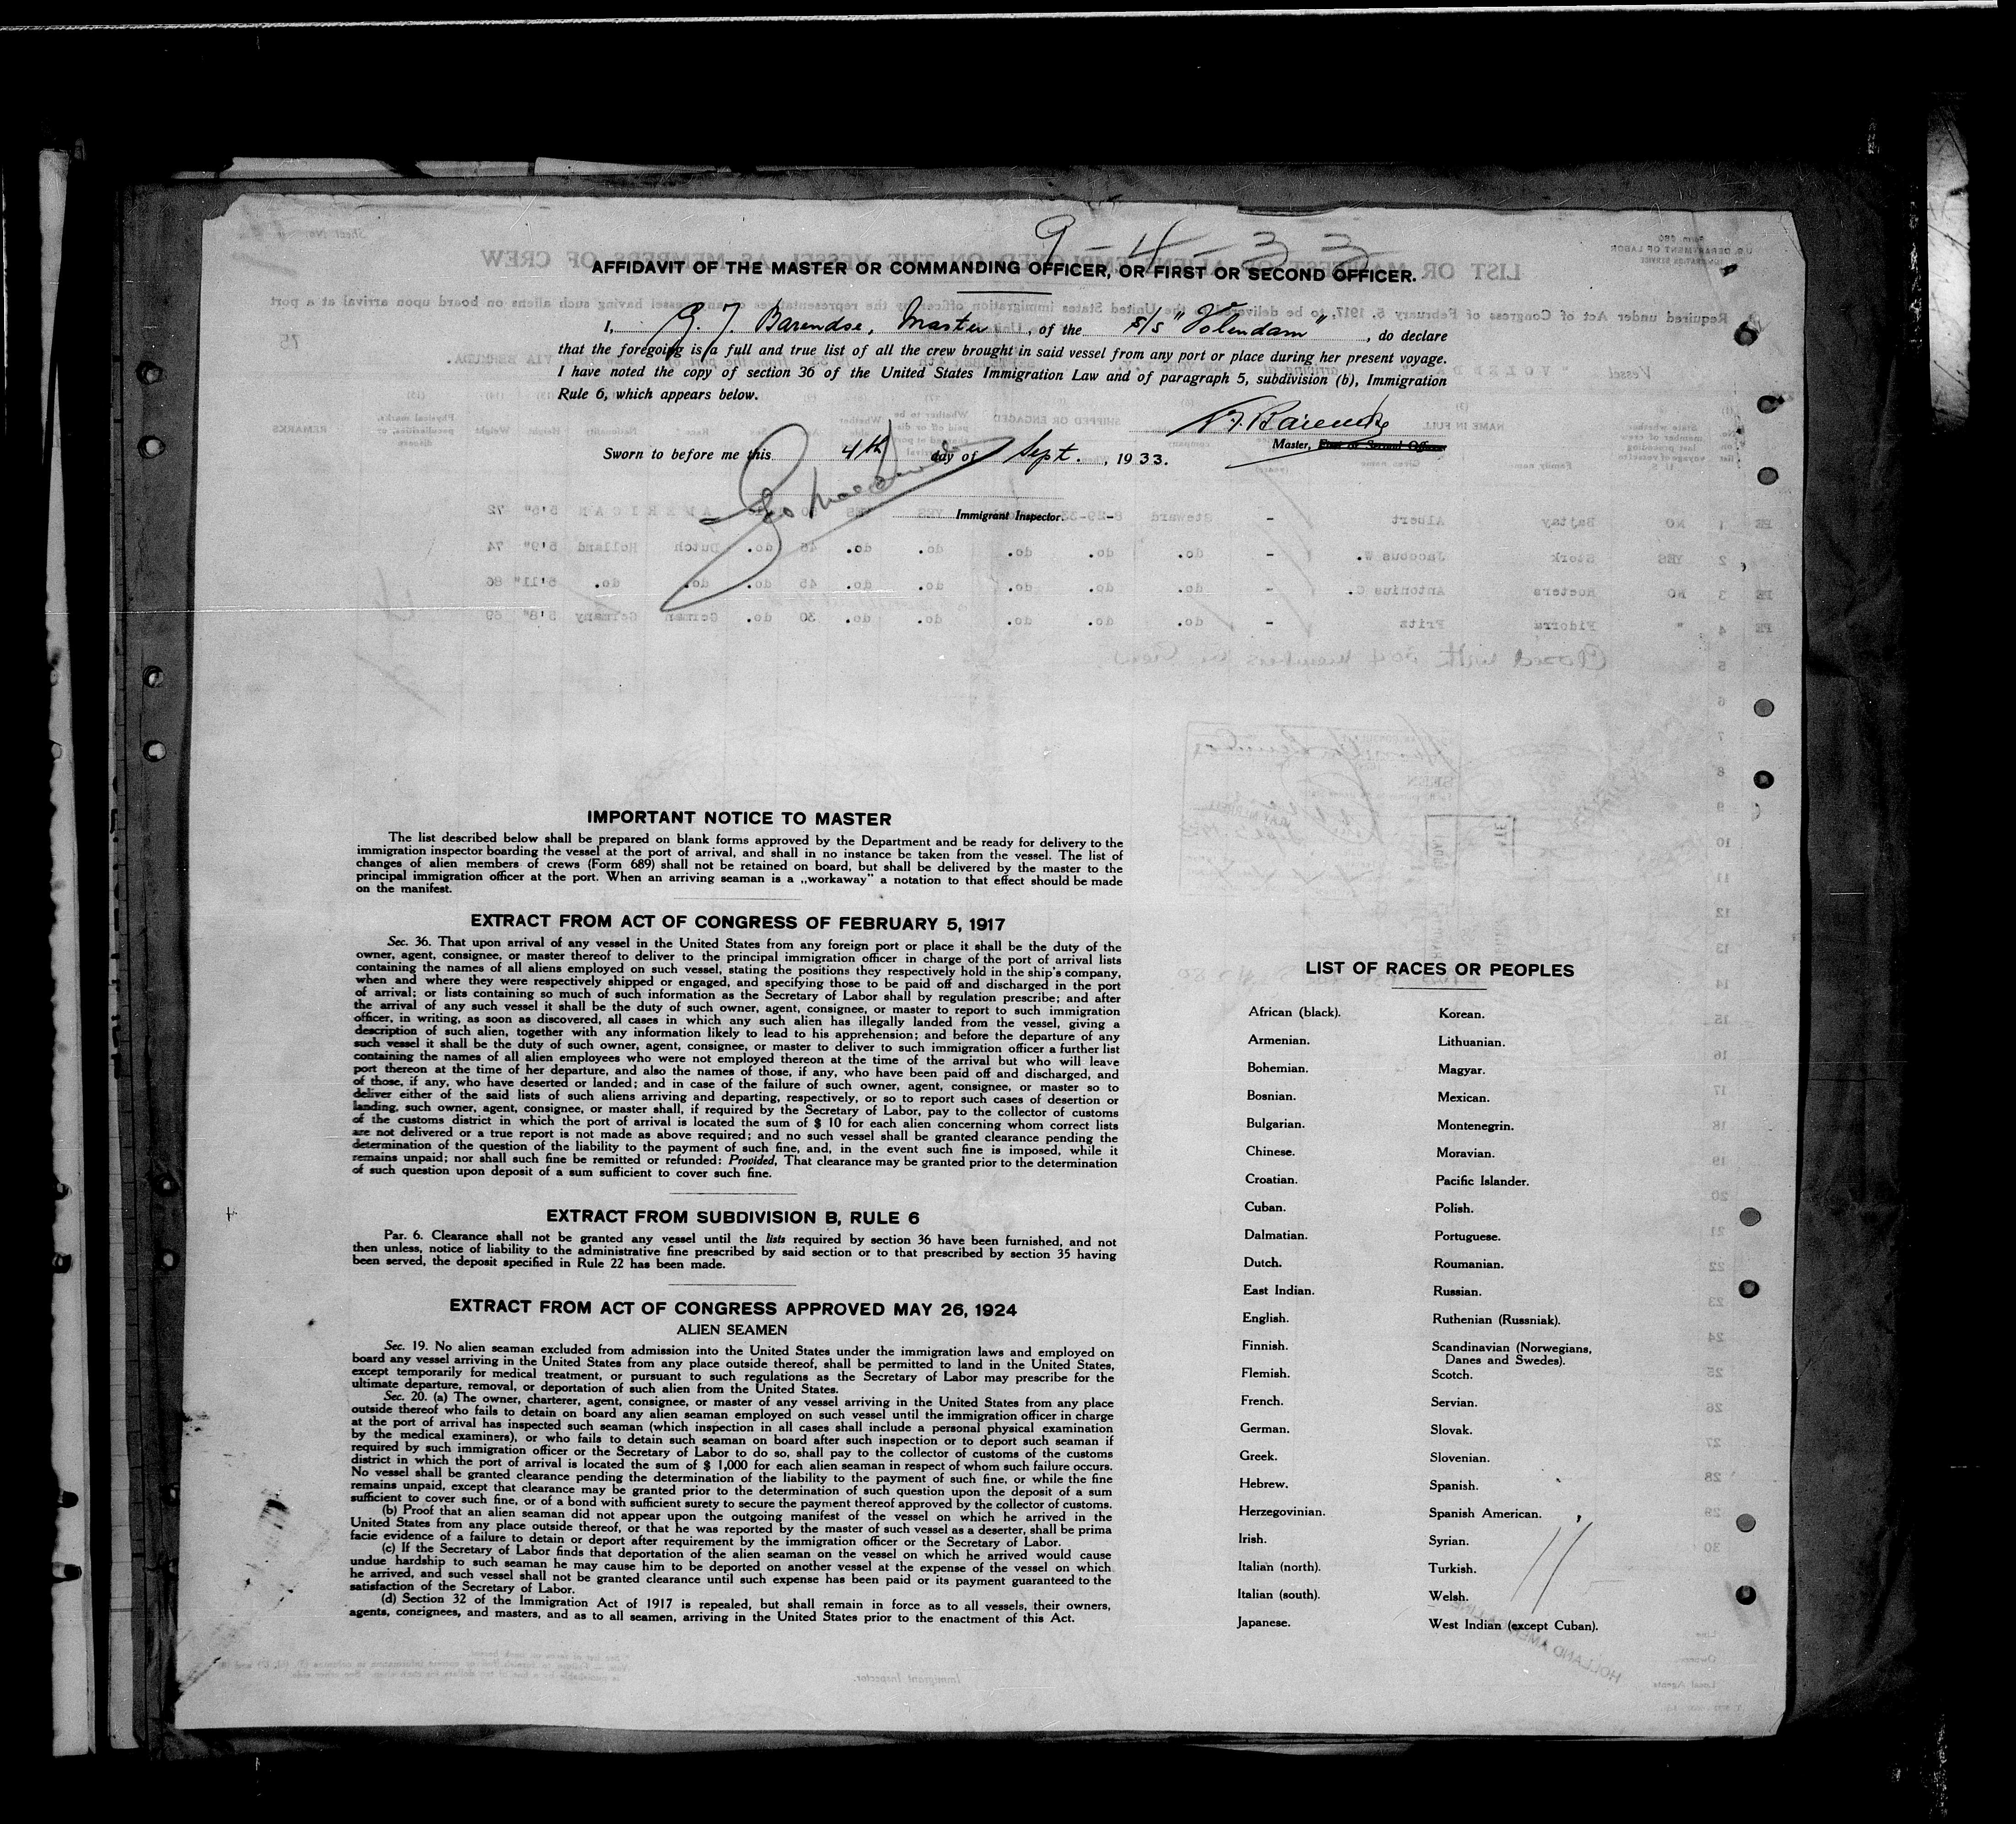 9-4-33
AFFIDAVIT OF THE MASTER OR COMMANDING OFFICER, OR FIRST OR SECOND OFFICER.
I, G. J. Barendse, Master, of the s/s "Volendam", do declare
that the foregoing is a full and true list of all the crew brought in said vessel from any port or place during her present voyage.
I have noted the copy of section 36 of the United States Immigration Law and of paragraph 5, subdivision (b), Immigration
Rule 6, which appears below.
G. J. Barendse
Master, First or Second Officer.
Sworn to before me this 4th day of Sept., 1933.
Immigrant Inspector.
IMPORTANT NOTICE TO MASTER
The list described below shall be prepared on blank forms approved by the Department and be ready for delivery to the
immigration inspector boarding the vessel at the port of arrival, and shall in no instance be taken from the vessel. The list of
changes of alien members of crews (Form 689) shall not be retained on board, but shall be delivered by the master to the
principal immigration officer at the port. When an arriving seaman is a „workaway" a notation to that effect should be made
on the manifest.
EXTRACT FROM ACT OF CONGRESS OF FEBRUARY 5, 1917
Sec. 36. That upon arrival of any vessel in the United States from any foreign port or place it shall be the duty of the
owner, agent, consignee, or master thereof to deliver to the principal immigration officer in charge of the port of arrival lists
containing the names of all aliens employed on such vessel, stating the positions they respectively hold in the ship's company,
when and where they were respectively shipped or engaged, and specifying those to be paid off and discharged in the port
of arrival; or lists containing so much of such information as the Secretary of Labor shall by regulation prescribe; and after
the arrival of any such vessel it shall be the duty of such owner, agent, consignee, or master to report to such immigration
officer, in writing, as soon as discovered, all cases in which any such alien has illegally landed from the vessel, giving a
description of such alien, together with any information likely to lead to his apprehension; and before the departure of any
such vessel it shall be the duty of such owner, agent, consignee, or master to deliver to such immigration officer a further list
containing the names of all alien employees who were not employed thereon at the time of the arrival but who will leave
port thereon at the time of her departure, and also the names of those, if any, who have been paid off and discharged, and
of those, if any, who have deserted or landed; and in case of the failure of such owner, agent, consignee, or master so to
deliver either of the said lists of such aliens arriving and departing, respectively, or so to report such cases of desertion or
landing, such owner, agent, consignee, or master shall, if required by the Secretary of Labor, pay to the collector of customs
of the customs district in which the port of arrival is located the sum of $ 10 for each alien concerning whom correct lists
are not delivered or a true report is not made as above required; and no such vessel shall be granted clearance pending the
determination of the question of the liability to the payment of such fine, and, in the event such fine is imposed, while it
remains unpaid; nor shall such fine be remitted or refunded: Provided, That clearance may be granted prior to the determination
of such question upon deposit of a sum sufficient to cover such fine.
EXTRACT FROM SUBDIVISION B, RULE 6
Par. 6. Clearance shall not be granted any vessel until the lists required by section 36 have been furnished, and not
then unless, notice of liability to the administrative fine prescribed by said section or to that prescribed by section 35 having
been served, the deposit specified in Rule 22 has been made.
EXTRACT FROM ACT OF CONGRESS APPROVED MAY 26, 1924
ALIEN SEAMEN
Sec. 19. No alien seaman excluded from admission into the United States under the immigration laws and employed on
board any vessel arriving in the United States from any place outside thereof, shall be permitted to land in the United States,
except temporarily for medical treatment, or pursuant to such regulations as the Secretary of Labor may prescribe for the
ultimate departure, removal, or deportation of such alien from the United States.
Sec. 20. (a) The owner, charterer, agent, consignee, or master of any vessel arriving in the United States from any place
outside thereof who fails to detain on board any alien seaman employed on such vessel until the immigration officer in charge
at the port of arrival has inspected such seaman (which inspection in all cases shall include a personal physical examination
by the medical examiners), or who fails to detain such seaman on board after such inspection or to deport such seaman if
required by such immigration officer or the Secretary of Labor to do so, shall pay to the collector of customs of the customs
district in which the port of arrival is located the sum of $ 1,000 for each alien seaman in respect of whom such failure occurs.
No vessel shall be granted clearance pending the determination of the liability to the payment of such fine, or while the fine
remains unpaid, except that clearance may be granted prior to the determination of such question upon the deposit of a sum
sufficient to cover such fine, or of a bond with sufficient surety to secure the payment thereof approved by the collector of customs.
(b) Proof that an alien seaman did not appear upon the outgoing manifest of the vessel on which he arrived in the
United States from any place outside thereof, or that he was reported by the master of such vessel as a deserter, shall be prima
facie evidence of a failure to detain or deport after requirement by the immigration officer or the Secretary of Labor.
(c) If the Secretary of Labor finds that deportation of the alien seaman on the vessel on which he arrived would cause
undue hardship to such seaman he may cause him to be deported on another vessel at the expense of the vessel on which
he arrived, and such vessel shall not be granted clearance until such expense has been paid or its payment guaranteed to the
satisfaction of the Secretary of Labor.
(d) Section 32 of the Immigration Act of 1917 is repealed, but shall remain in force as to all vessels, their owners,
agents, coneignees, and masters, and as to all seamen, arriving in the United States prior to the enactment of this Act.
LIST OF RACES OR PEOPLES
African (black). Korean.
Armenian. Lithuanian.
Bohemian. Magyar.
Bosnian. Mexican.
Bulgarian. Montenegrin.
Chinese. Moravian.
Croatian. Pacific Islander.
Cuban. Polish.
Dalmatian. Portuguese.
Dutch. Roumanian.
East Indian. Russian.
English. Ruthenian (Russniak).
Finnish. Scandinavian (Norwegians,
Danes and Swedes).
Flemish. Scotch.
French. Servian.
German. Slovak.
Greek. Slovenian.
Hebrew. Spanish.
Herzegovinian. Spanish American.
Irish. Syrian.
Italian (north). Turkish.
Italian (south). Welsh.
Japanese. West Indian (except Cuban).